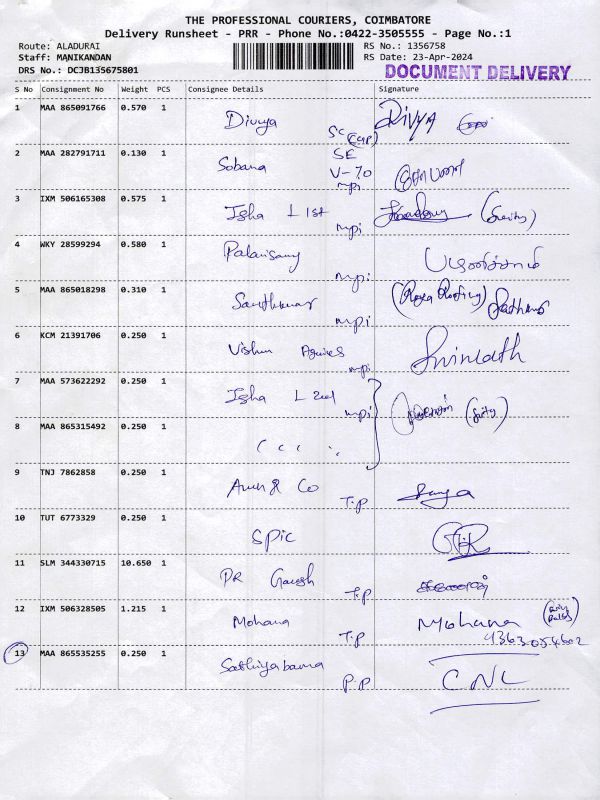 THE PROFESSIONAL COURIERS, COIMBATORE
Delivery Runsheet - PRR - Phone No.:0422-3505555 - Page No.:1
Route: ALADURAI
Staff: MANIKANDAN
DRS No.: DCJB135675801
RS No.: 1356758
RS Date: 23-Apr-2024
DOCUMENT DELIVERY
S No Consignment No Weight PCS Consignee Details Signature
1 MAA 865091766 0.570 1 Divya RIVYA
2 MAA 282791711 0.130 1 Sobana SE V-70 mpi
3 IXM 506165308 0.575 1 Isha L 1st mpi
4 WKY 28599294 0.580 1 Palanisamy mpi பழனிச்சாமி
5 MAA 865018298 0.310 1 mpi
6 KCM 21391706 0.250 1 Vishnu mpi
7 MAA 573622292 0.250 1 Isha L 2nd mpi
8 MAA 865315492 0.250 1
9 TNJ 7862858 0.250 1 Arun & Co T.P
10 TUT 6773329 0.250 1 SPIC
11 SLM 344330715 10.650 1 PR Ganesh T.P
12 IXM 506328505 1.215 1 Mohana T.P Mohana
9363054602
13 MAA 865535255 0.250 1 Sathiyabama P.P CNL